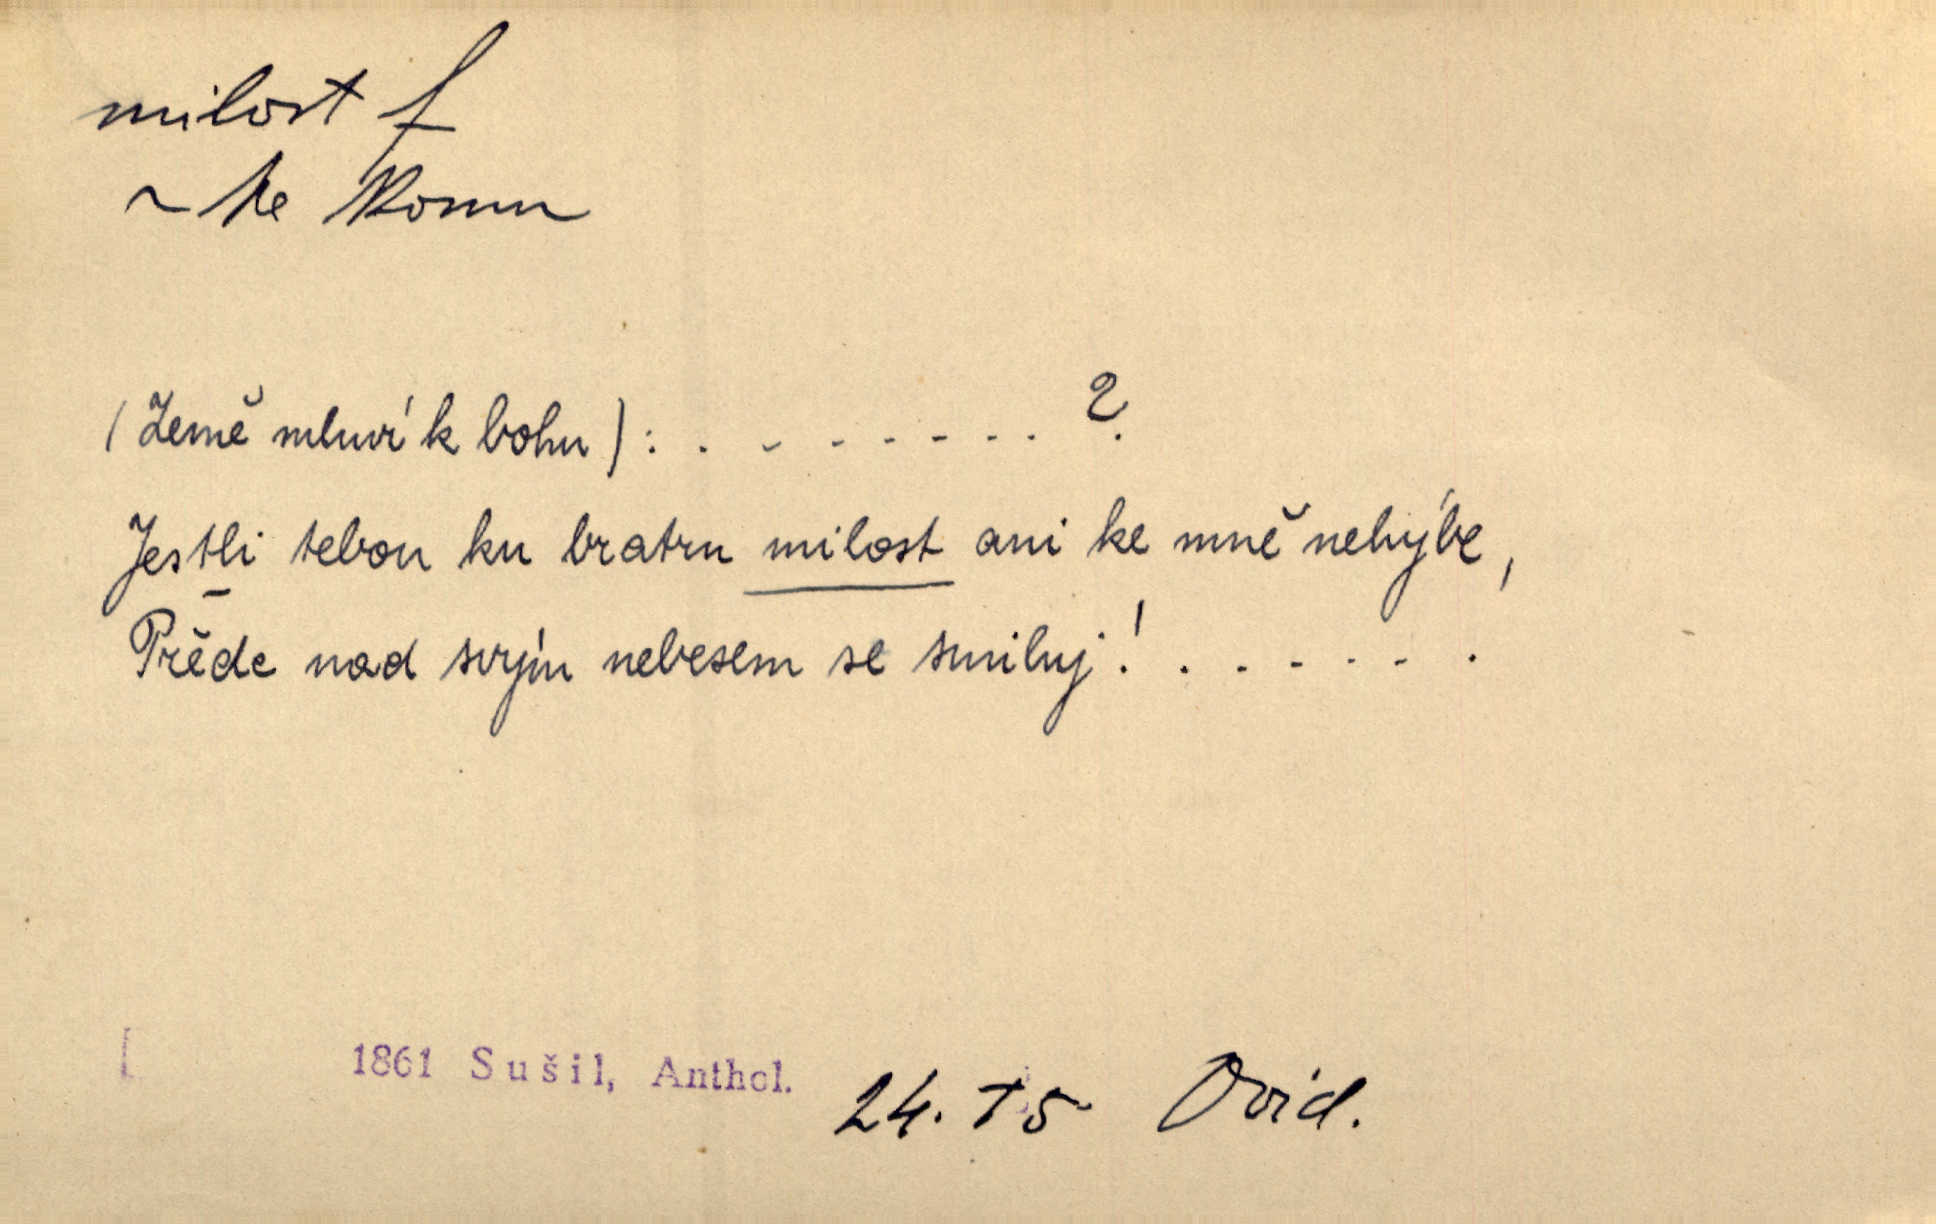 milost f
~ ke komu
(Země mluví k bohu) : . - - - - - . . ?
Jestli tebou ku bratru milost ani ke mně nehýbe,
Přěde nad svým nebesem se smiluj! . . - - - - .
[ 1861 Sušil, Anthol. 24. T5 Ovid.